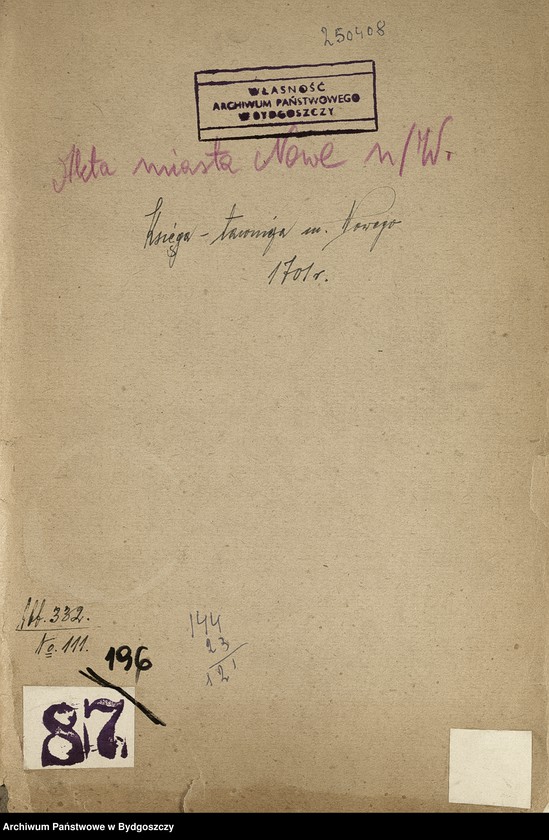 250408
WŁASNOŚĆ
ARCHIWUM PAŃSTWOWEGO
W BYDGOSZCZY
Akta miasta Nowe n/W.
Księga - ławnicza m. Nowego
1701r.
Abt. 332.
No. 111.
196
144
23
121
87
Archiwum Państwowe w Bydgoszczy